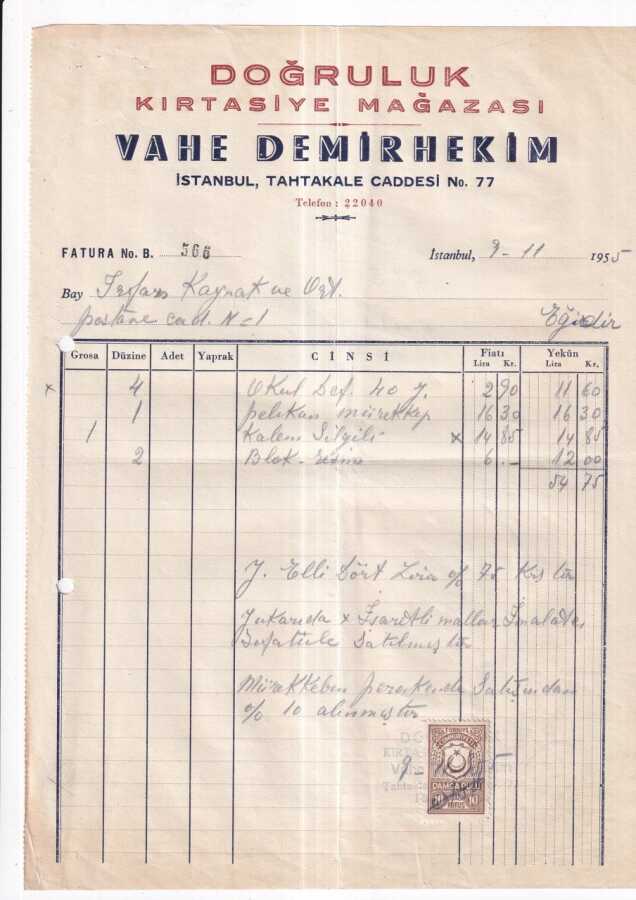 DOĞRULUK
KIRTASİYE MAĞAZASI
VAHE DEMİRHEKİM
İSTANBUL, TAHTAKALE CADDESİ No. 77
Telefon : 22040
FATURA No. B. 566 İstanbul, 9 - 11 1955
Bay Kaynak ve Ort.
postane cad. N=1 Eğirdir
Grosa Düzine Adet Yaprak CİNSİ Fiatı Lira Kr. Yekûn Lira Kr.
x 4 Okul Def. 40 y. 2 90 11 60
1 pelikan mürekkep 16 30 16 30
1 Kalem Silgili x 14 85 14 85
2 Blok resim 6 . - 12 00
54 75
Y. Elli Dört Lira % 75 Krş tur
Yukarıda x İşaretli mallar İmalatcı
Sıfatıyle Satılmıştır
Mürekkeben perakende Satışından
% 10 alınmıştır
9 -
TÜRKİYE
CUMHURİYETİ
DAMGA PULU
10 10
KURUŞ